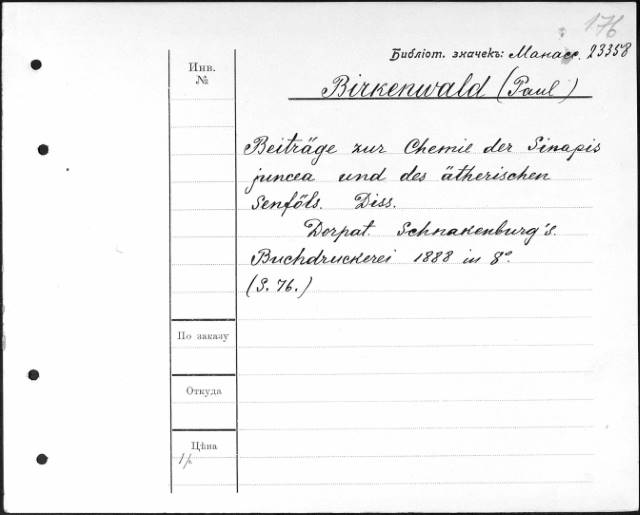 176
Библіот. значекъ: Манасс. 23358
Инв.
№
Birkenwald (Paul)
Beiträge zur Chemie der Sinapis
juncea und des ätherischen
Senföls. Diss.
Dorpat. Schnakenburg's.
Buchdruckerei 1888 in 8°.
(S. 76.)
По заказу
Откуда
Цѣна
1 р.